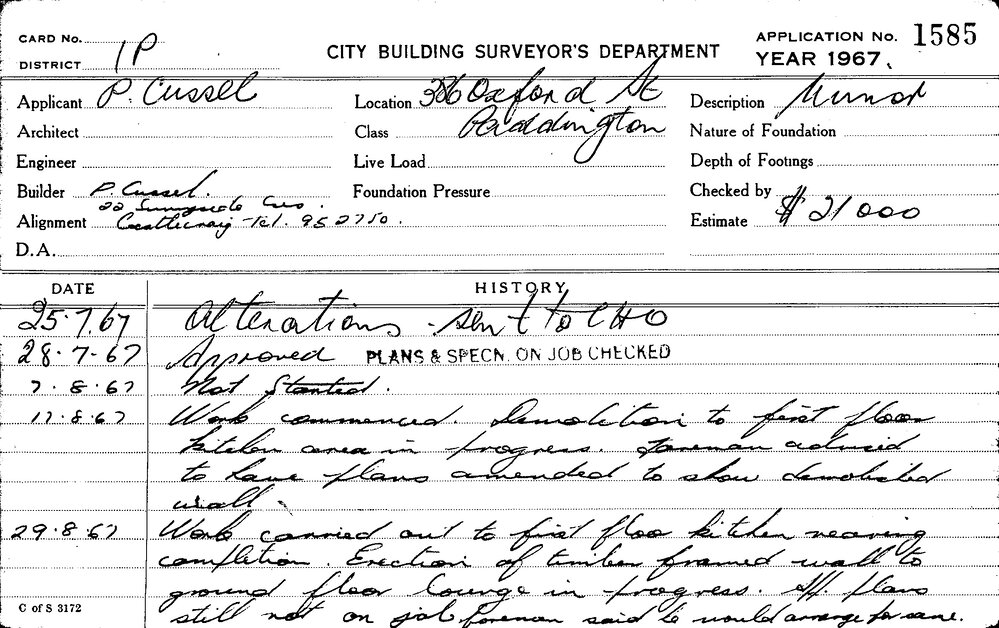 CARD No.
DISTRICT 1P
CITY BUILDING SURVEYOR'S DEPARTMENT
APPLICATION No. 1585
YEAR 1967
Applicant P. Cussel
Location 386 Oxford St
Description Minor
Architect
Class Paddington
Nature of Foundation
Engineer
Live Load
Depth of Footings
Builder P. Cussel.
Foundation Pressure
Checked by
22 Sunnyside Cres.
Alignment Castlecraig Tel. 952750.
Estimate $21000
D.A.
DATE HISTORY
25.7.67 Alterations - sent to CHO
28.7.67 Approved PLANS & SPECN. ON JOB CHECKED
7.8.67 Not Started.
17.8.67 Work commenced. Demolition to first floor
kitchen area in progress. Foreman advised
to have plans amended to show demolished
wall
29.8.67 Work carried out to first floo kitchen nearing
completion. Erection of timber framed wall to
ground floor lounge in progress. App. plans
still not on job foreman said he would arrange for same.
C of S 3172